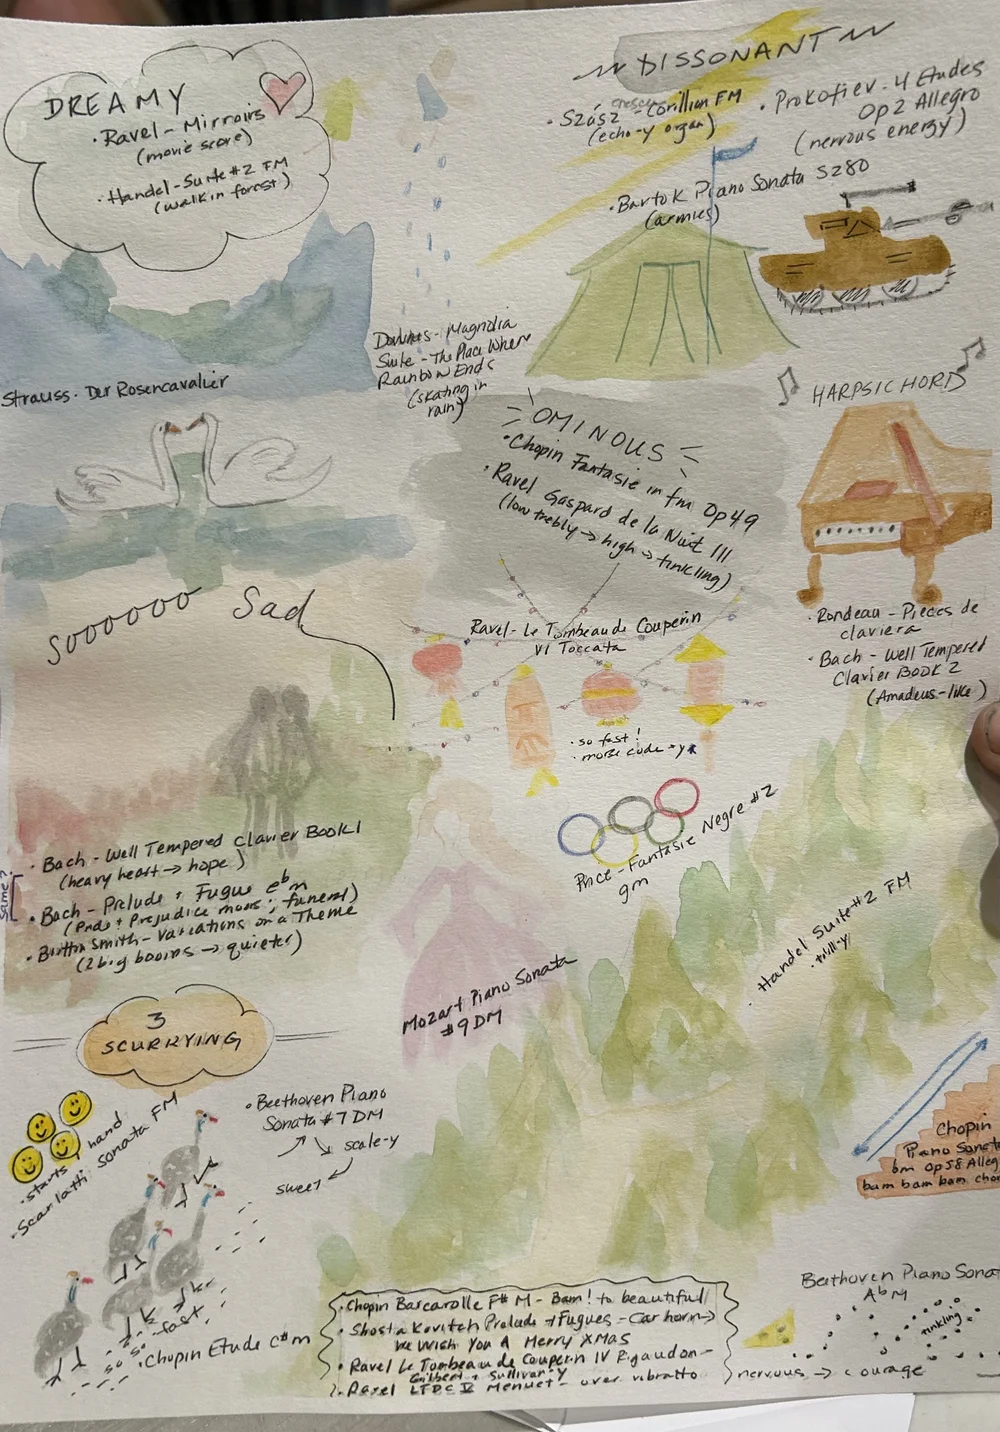 DREAMY
• Ravel - Mirroirs
(movie score)
• Handel - Suite #2 FM
(walk in forest)
DISSONANT
• Szász - Corillion FM
(echo-y organ)
• Prokofiev - 4 Etudes
Op 2 Allegro
(nervous energy)
• Bartok Piano Sonata SZ80
(armies)
Strauss - Der Rosencavalier
Magnolia
Suite - The Place Where
Rainbow Ends
(skating in
rain)
OMINOUS
• Chopin Fantasie in fm Op 49
• Ravel Gaspard de la Nuit III
(low trebly → high → tinkling)
HARPSICHORD
• Rondeau - Pieces de
claviera
• Bach - Well Tempered
Clavier BOOK 2
(Amadeus-like)
soooooo Sad
Ravel - Le Tombeau de Couperin
VI Toccata
• so fast!
• morse code - y
• Bach - Well Tempered Clavier BOOK 1
(heavy heart → hope)
same?
• Bach - Prelude + Fugue e♭m
(Pride + Prejudice music; funeral)
• Smith - Variations on a Theme
(2 big booms → quieter)
Price - Fantasie Negre #2
gm
Handel Suite #2 FM
• trill-y
Mozart Piano Sonata
#9 DM
3
SCURRYING
• starts, hand
• Scarlatti Sonata FM
• Beethoven Piano
Sonata #7 DM
scale-y
sweet
so so fast
• Chopin Etude c#m
Chopin
Piano Sonat
bm Op 58 Alleg
bum bam bam chor
• Chopin Barcarolle F# M - Bam! to beautiful
• Shostakovitch Prelude + Fugues - Car horn →
We Wish You A Merry XMAS
• Ravel Le Tombeau de Couperin IV Rigaudon -
Gilbert + Sullivan-y
• Ravel LTDC V Menuet - over vibratto
Beethoven Piano Sonat
A♭M
tinkling
nervous → courage